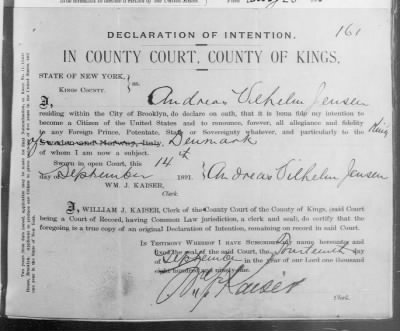 161
DECLARATION OF INTENTION.
IN COUNTY COURT, COUNTY OF KINGS,
STATE OF NEW YORK,
KINGS COUNTY. } ss.
I, Andreas Vilhelm Jensen
residing within the City of Brooklyn, do declare on oath, that it is bona fide my intention to
become a Citizen of the United States and to renounce, forever, all allegiance and fidelity
to any Foreign Prince, Potentate, State or Sovereignty whatever, and particularly to the King
of Denmark
of whom I am now a subject.
Sworn in open Court, this 14th
day of September 1891. Andreas Vilhelm Jensen
WM. J. KAISER,
Clerk.
I, WILLIAM J. KAISER, Clerk of the County Court of the County of Kings, (said Court
being a Court of Record, having Common Law jurisdiction, a clerk and seal), do certify that the
foregoing is a true copy of an original Declaration of Intention, remaining on record in said Court.
IN TESTIMONY WHEREOF I HAVE SUBSCRIBED my name hereunto and
the seal of the said Court, the fourteenth day
of September in the year of our Lord one thousand
eight hundred and ninety one.
Wm J Kaiser
Clerk.